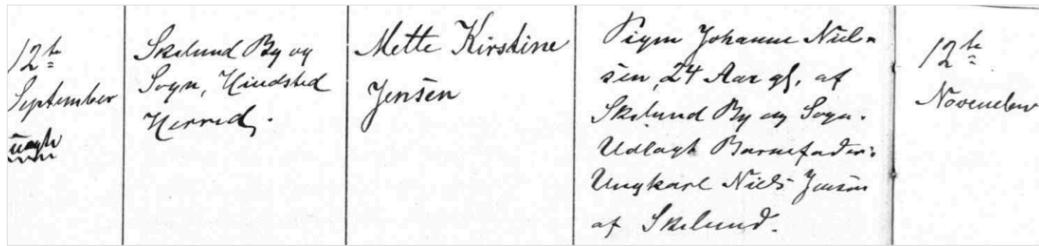 12te
September
uægte
Skelund By og
Sogn, Hindsted
Herred.
Mette Kirstine
Jensen
Pigen Johanne Niel-
sen, 24 Aar gl. af
Skelund By og Sogn.
Udlagt Barnefader:
Ungkarl Niels Jensen
af Skelund.
12te
November